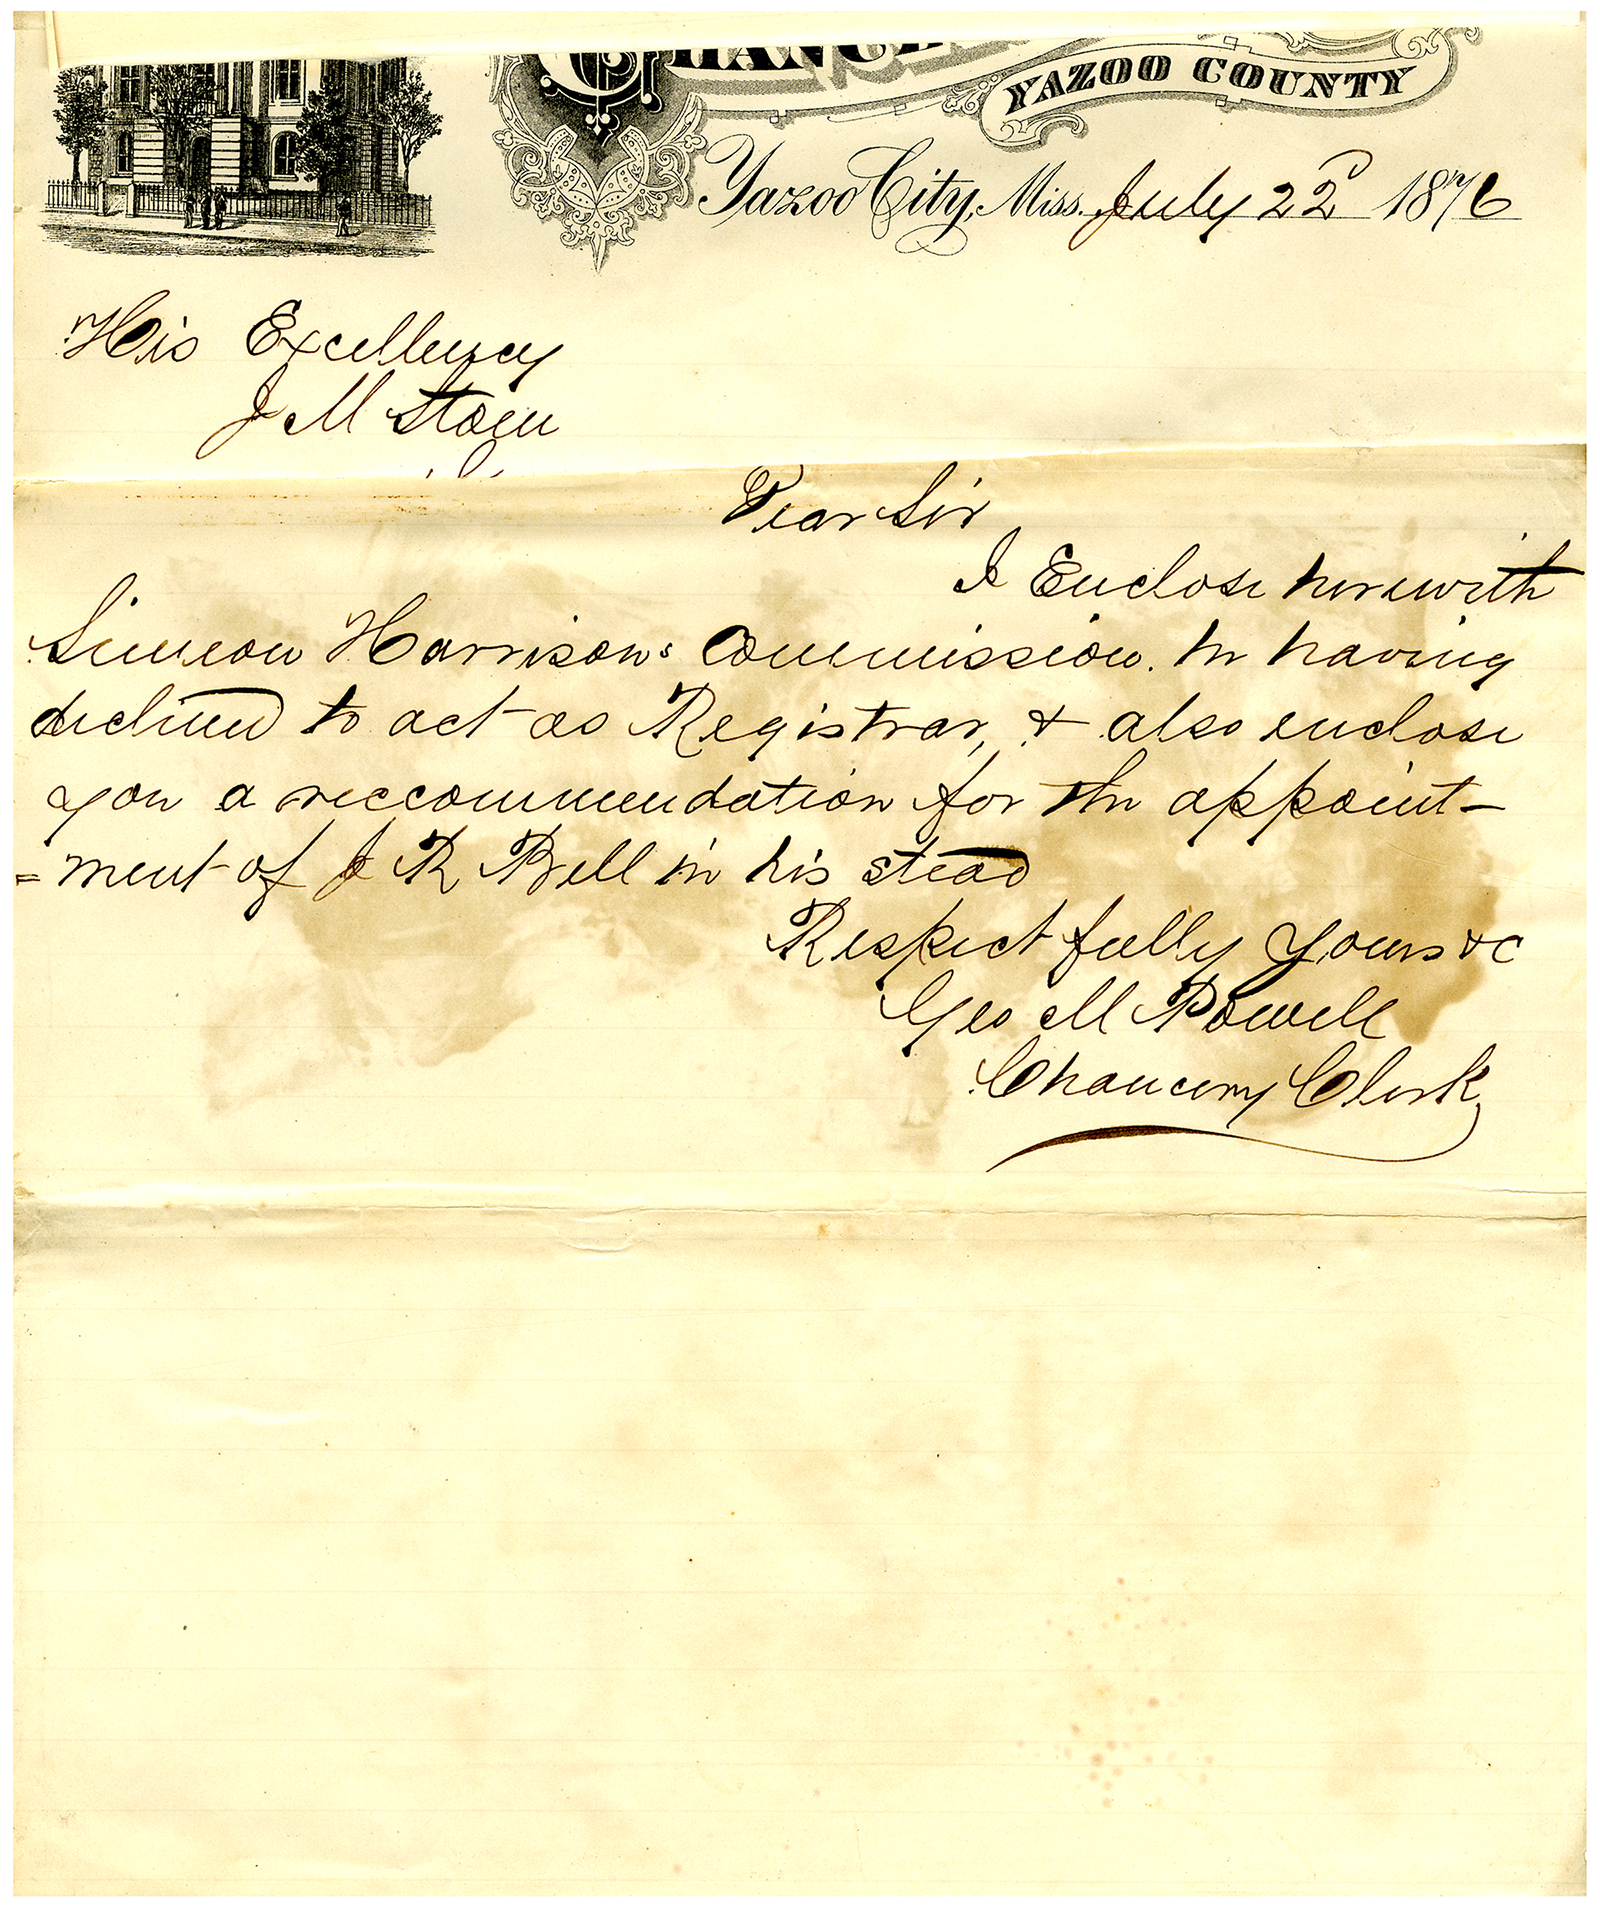 YAZOO COUNTY
Yazoo City, Miss. July 22d 1876
His Excellency
J M Stone
Dear Sir
I Enclose herewith
Simeon Harrisons Commission. he having
declined to act as Registrar, & also enclose
you a reccommendation for the appoint-
=ment of J R Bell in his stead
Respectfully Yours &c
Geo M Powell
Chancery Clerk